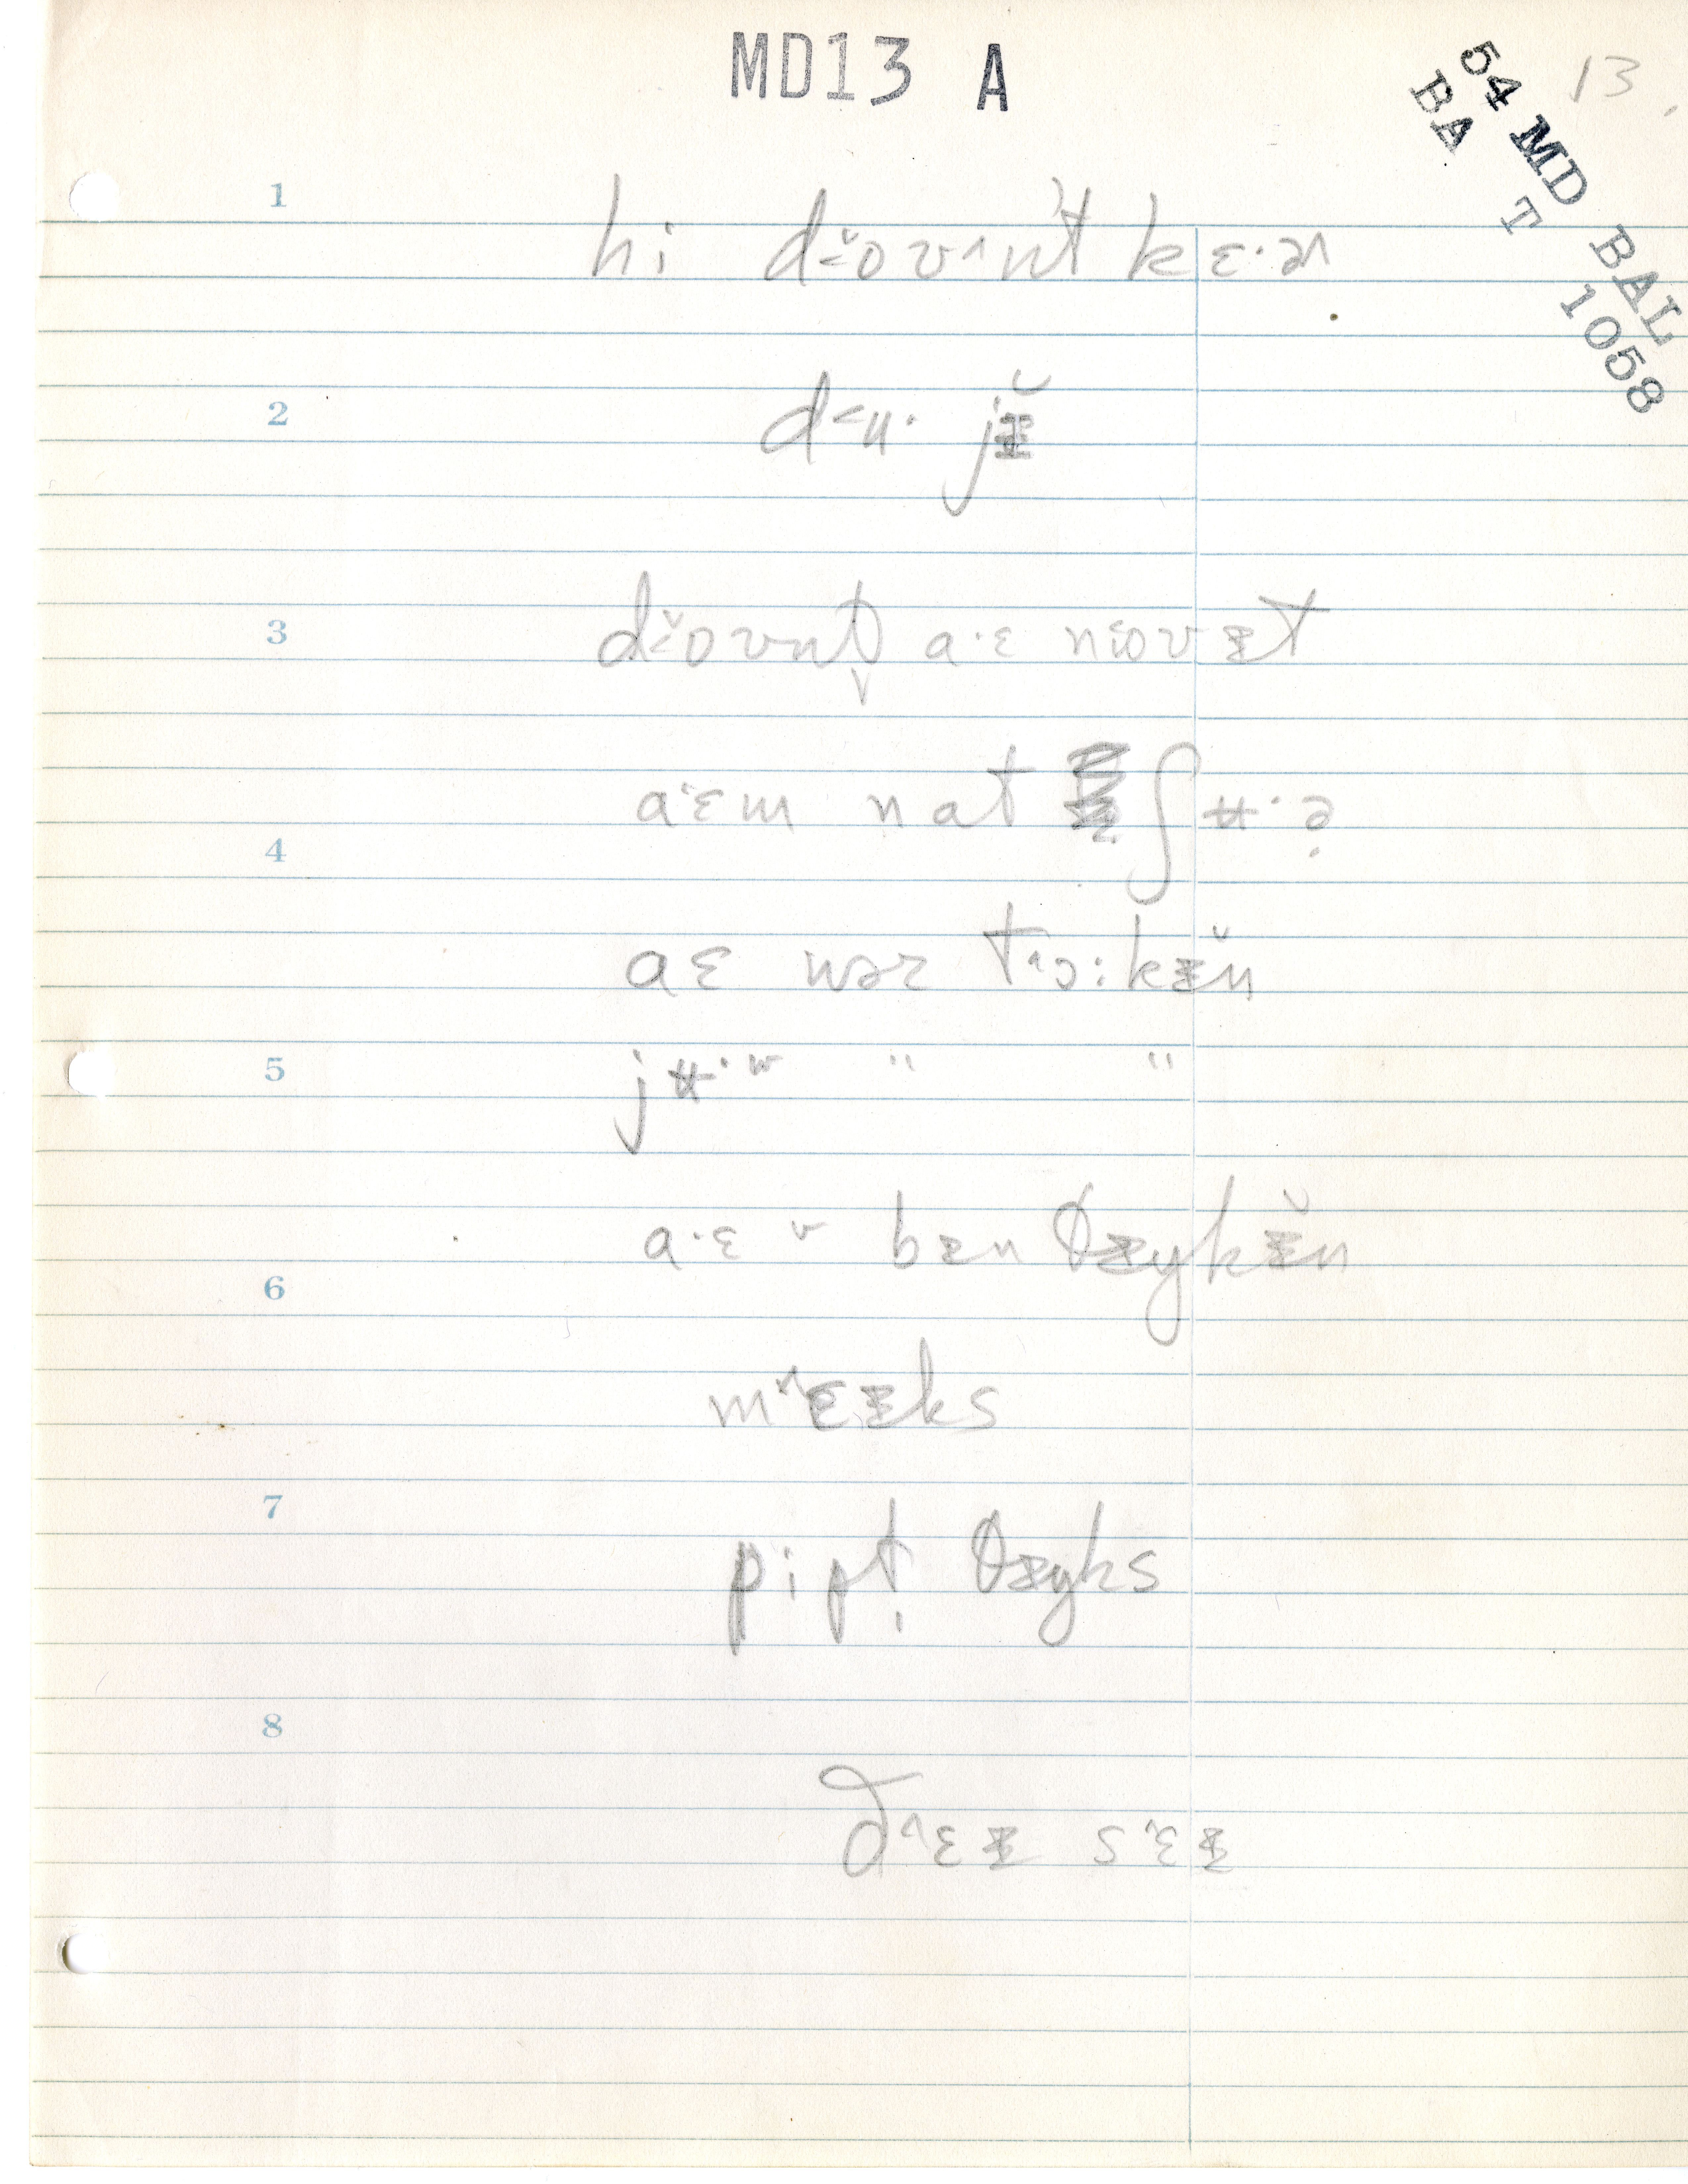 MD13 A
13.
54 MD BAL
BA T 1058
1
hi d˂ŏʊ^nt kɛ·ə^
2
d˂ʉ· jɪ̵̆
3
d˂ŏʊnt̬ a·ɛ n˂oʊɪ̵t
a·ɛm nat ʃʉ·ə̣
4
aɛ wər t^ɔ:kɪ̵̆n
5
jʉ·w " "
a·ɛ v bɪ̵n θɪ̵ŋkɪ̵̆n
6
m^ɛɪ̵ks
7
pipt̩ θɪ̵ŋks
8
ð^ɛɪ̵ s^ɛɪ̵